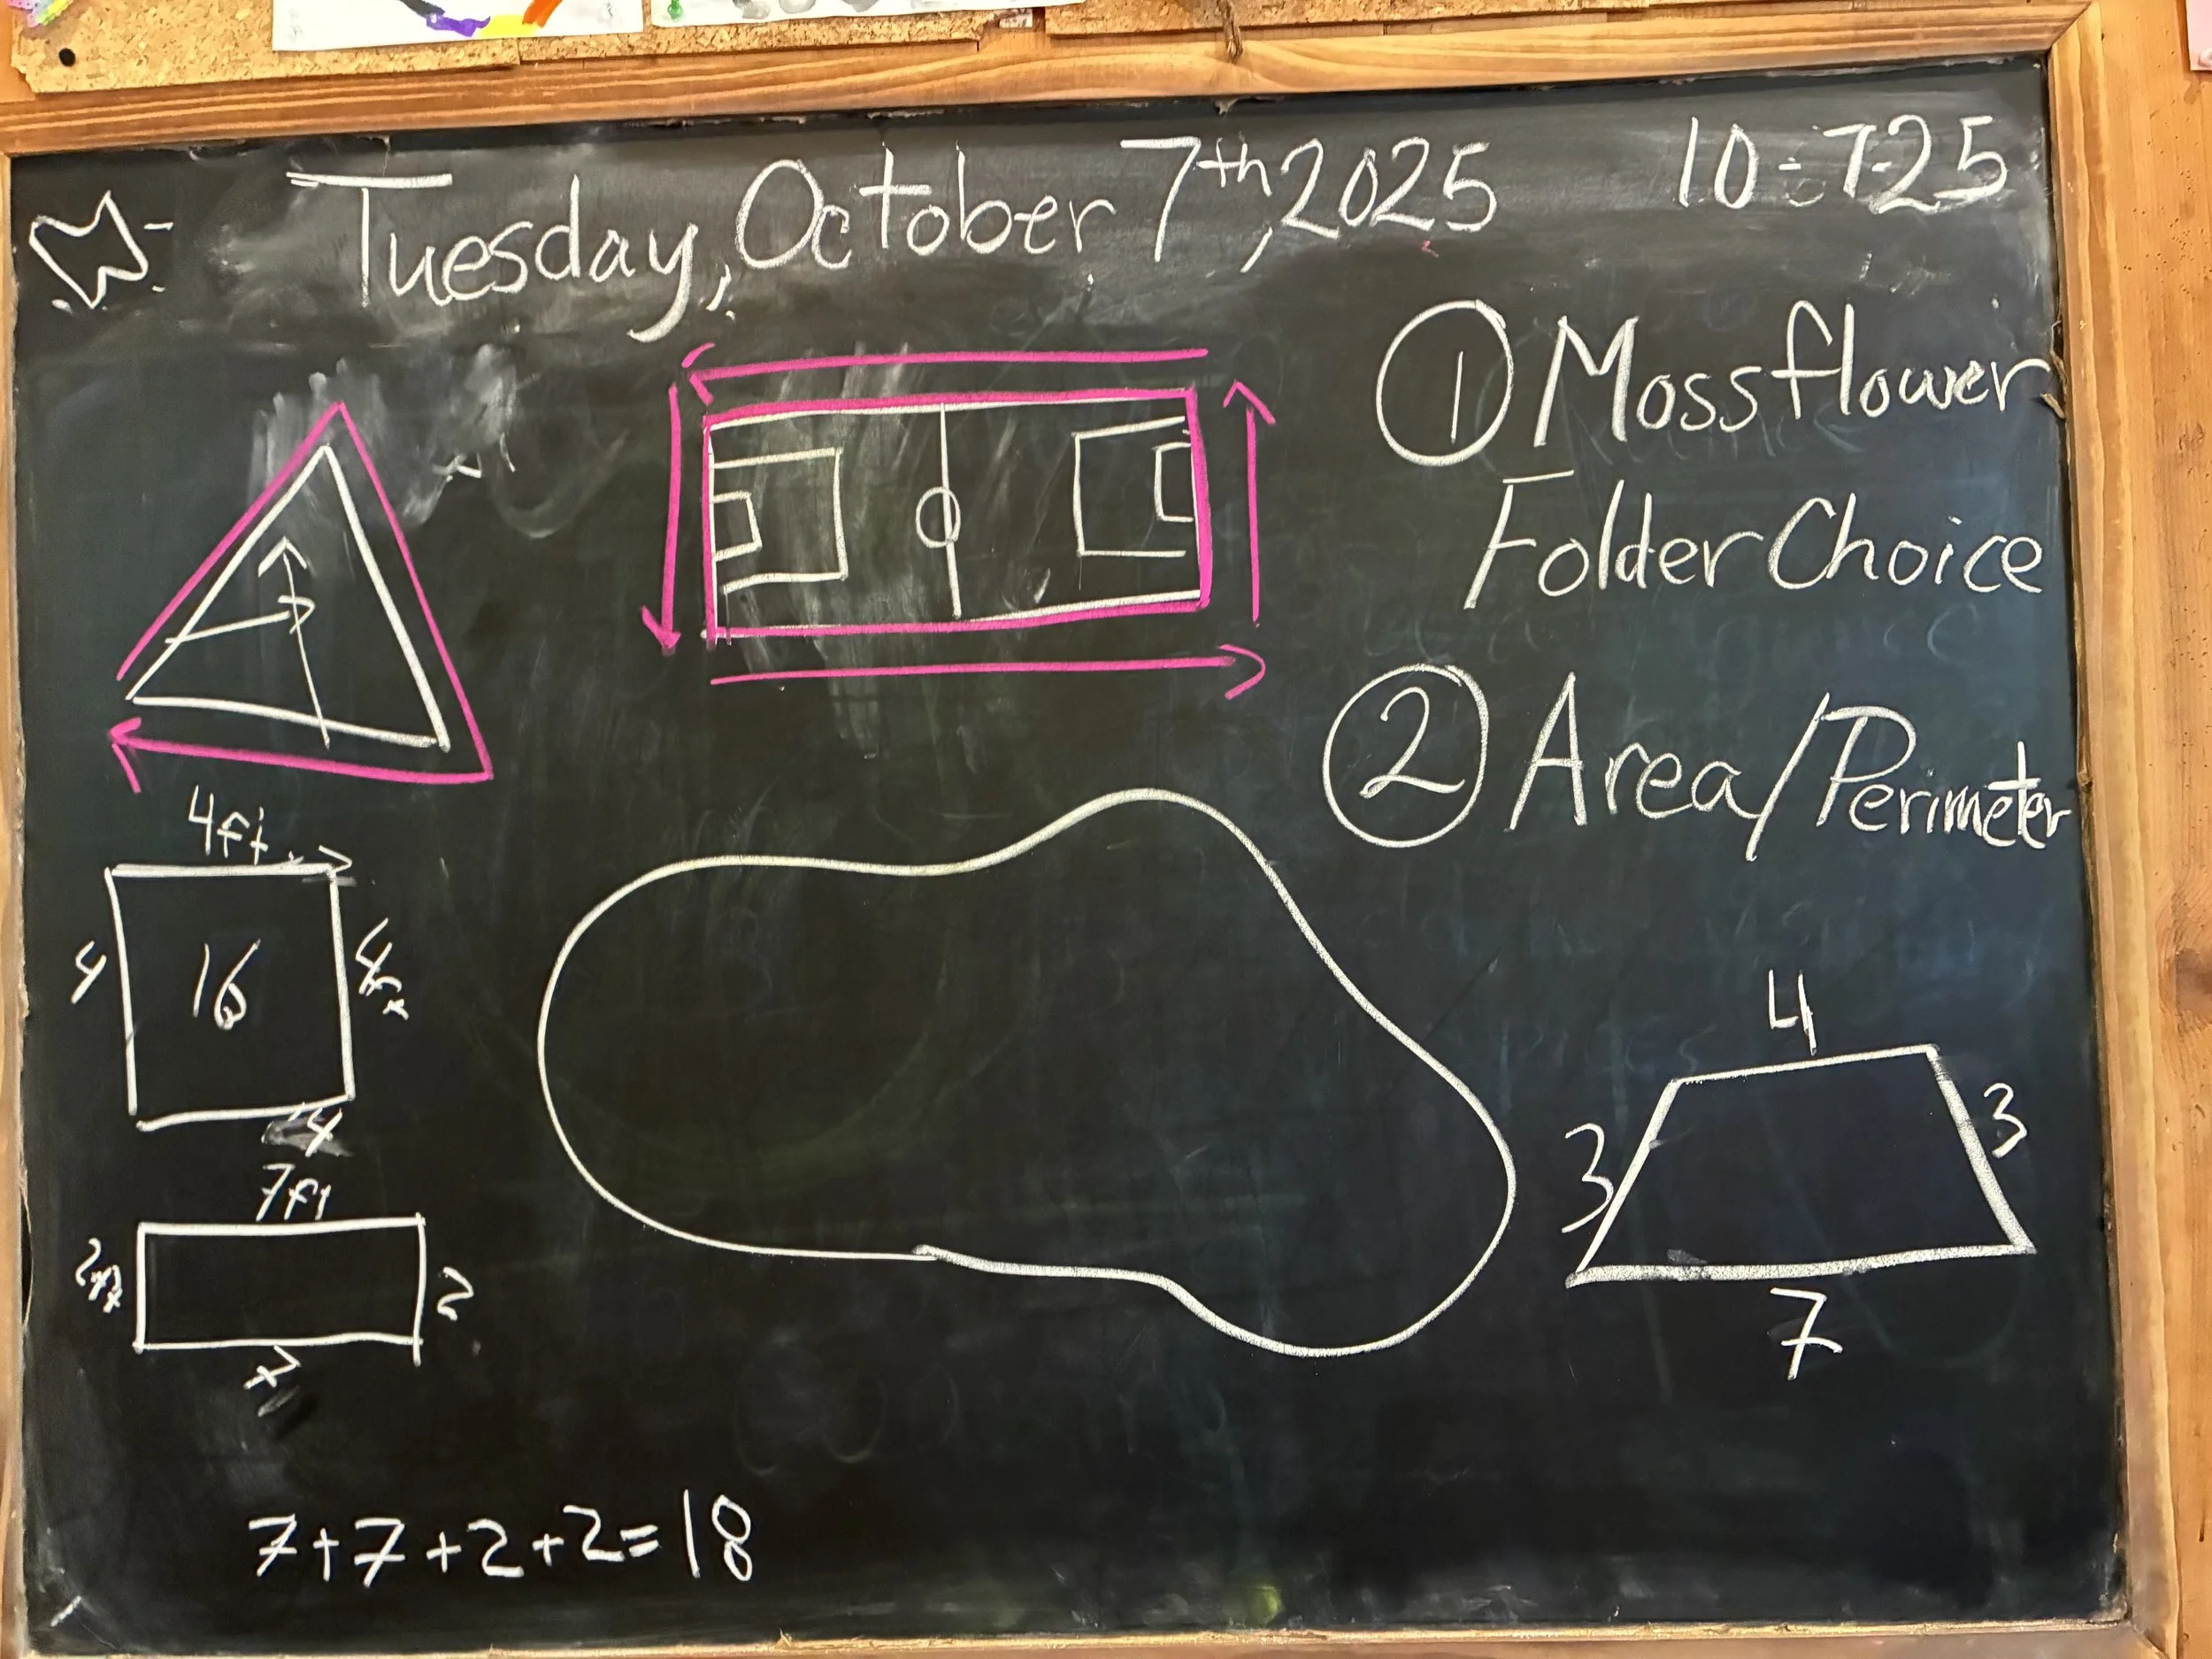 Tuesday, October 7th, 2025
10-7-25
① Mossflower
Folder Choice
② Area/Perimeter
4ft.
4
16
4
7ft
2ft
2
7
7+7+2+2=18
4
3
3
7